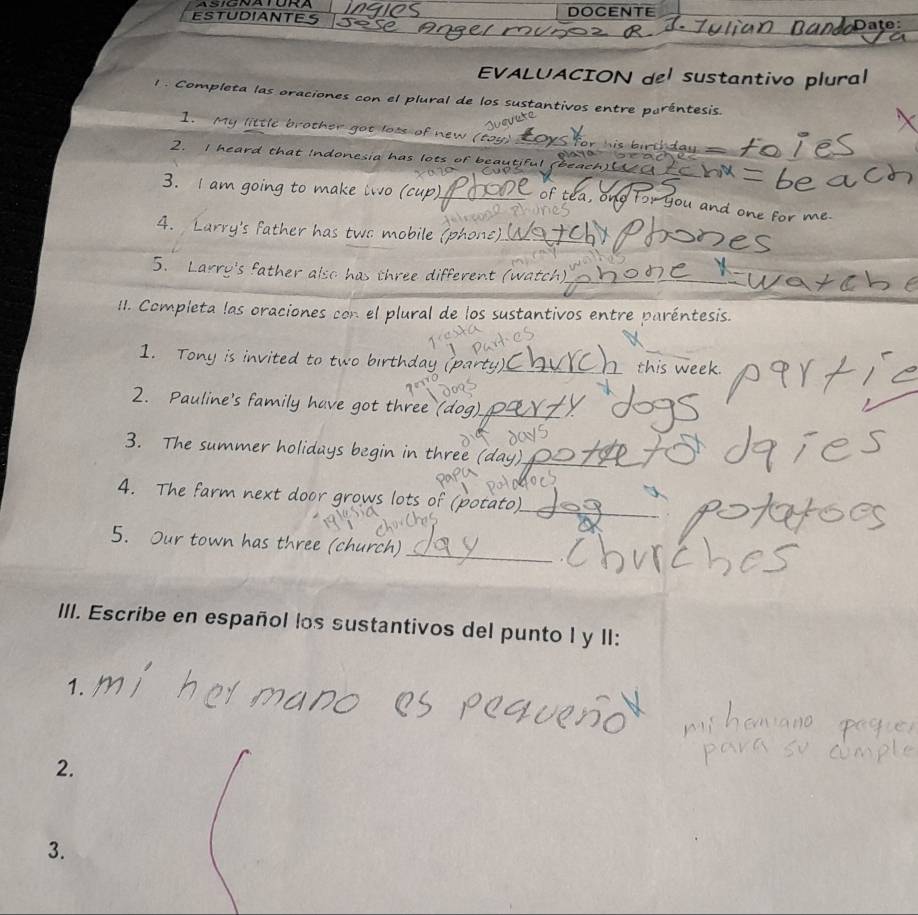 ASIGNATURA ingles DOCENTE
ESTUDIANTES Jose Angel muñoz R. J. Julian Banda Date:
EVALUACION del sustantivo plural
I. Completa las oraciones con el plural de los sustantivos entre paréntesis.
juguete
1. My little brother got lots of new (toy) toys for his birthday = toies
playa beaches
2. I heard that Indonesia has lots of beautiful (beach) watch = beach
taza cups
3. I am going to make two (cup) phone of tea, one for you and one for me.
phones
4. Larry's father has two mobile (phone) watch phones
5. Larry's father also has three different (watch) phone = watche
II. Completa las oraciones con el plural de los sustantivos entre paréntesis.
parties
1. Tony is invited to two birthday (party) church this week. partie
perro dogs
2. Pauline's family have got three (dog) party dogs
dia days
3. The summer holidays begin in three (day) potato daies
papa potatoes
4. The farm next door grows lots of (potato) dog potatoes
iglesia churches
5. Our town has three (church) day churches
III. Escribe en español los sustantivos del punto I y II:
1. mi hermano es pequeño
mi hermano peque
para su cumple
2.
3.